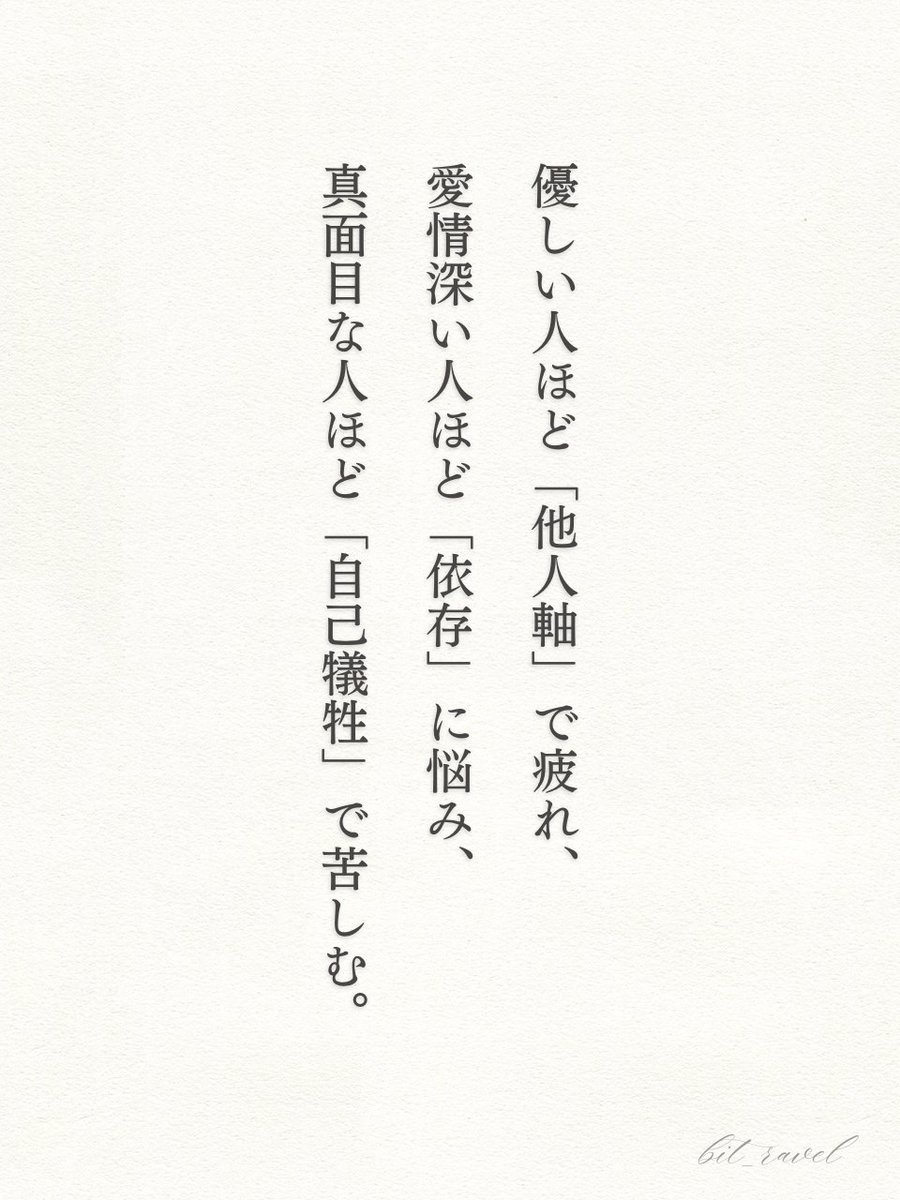 優しい人ほど「他人軸」で疲れ、
愛情深い人ほど「依存」に悩み、
真面目な人ほど「自己犠牲」で苦しむ。
bit_ravel